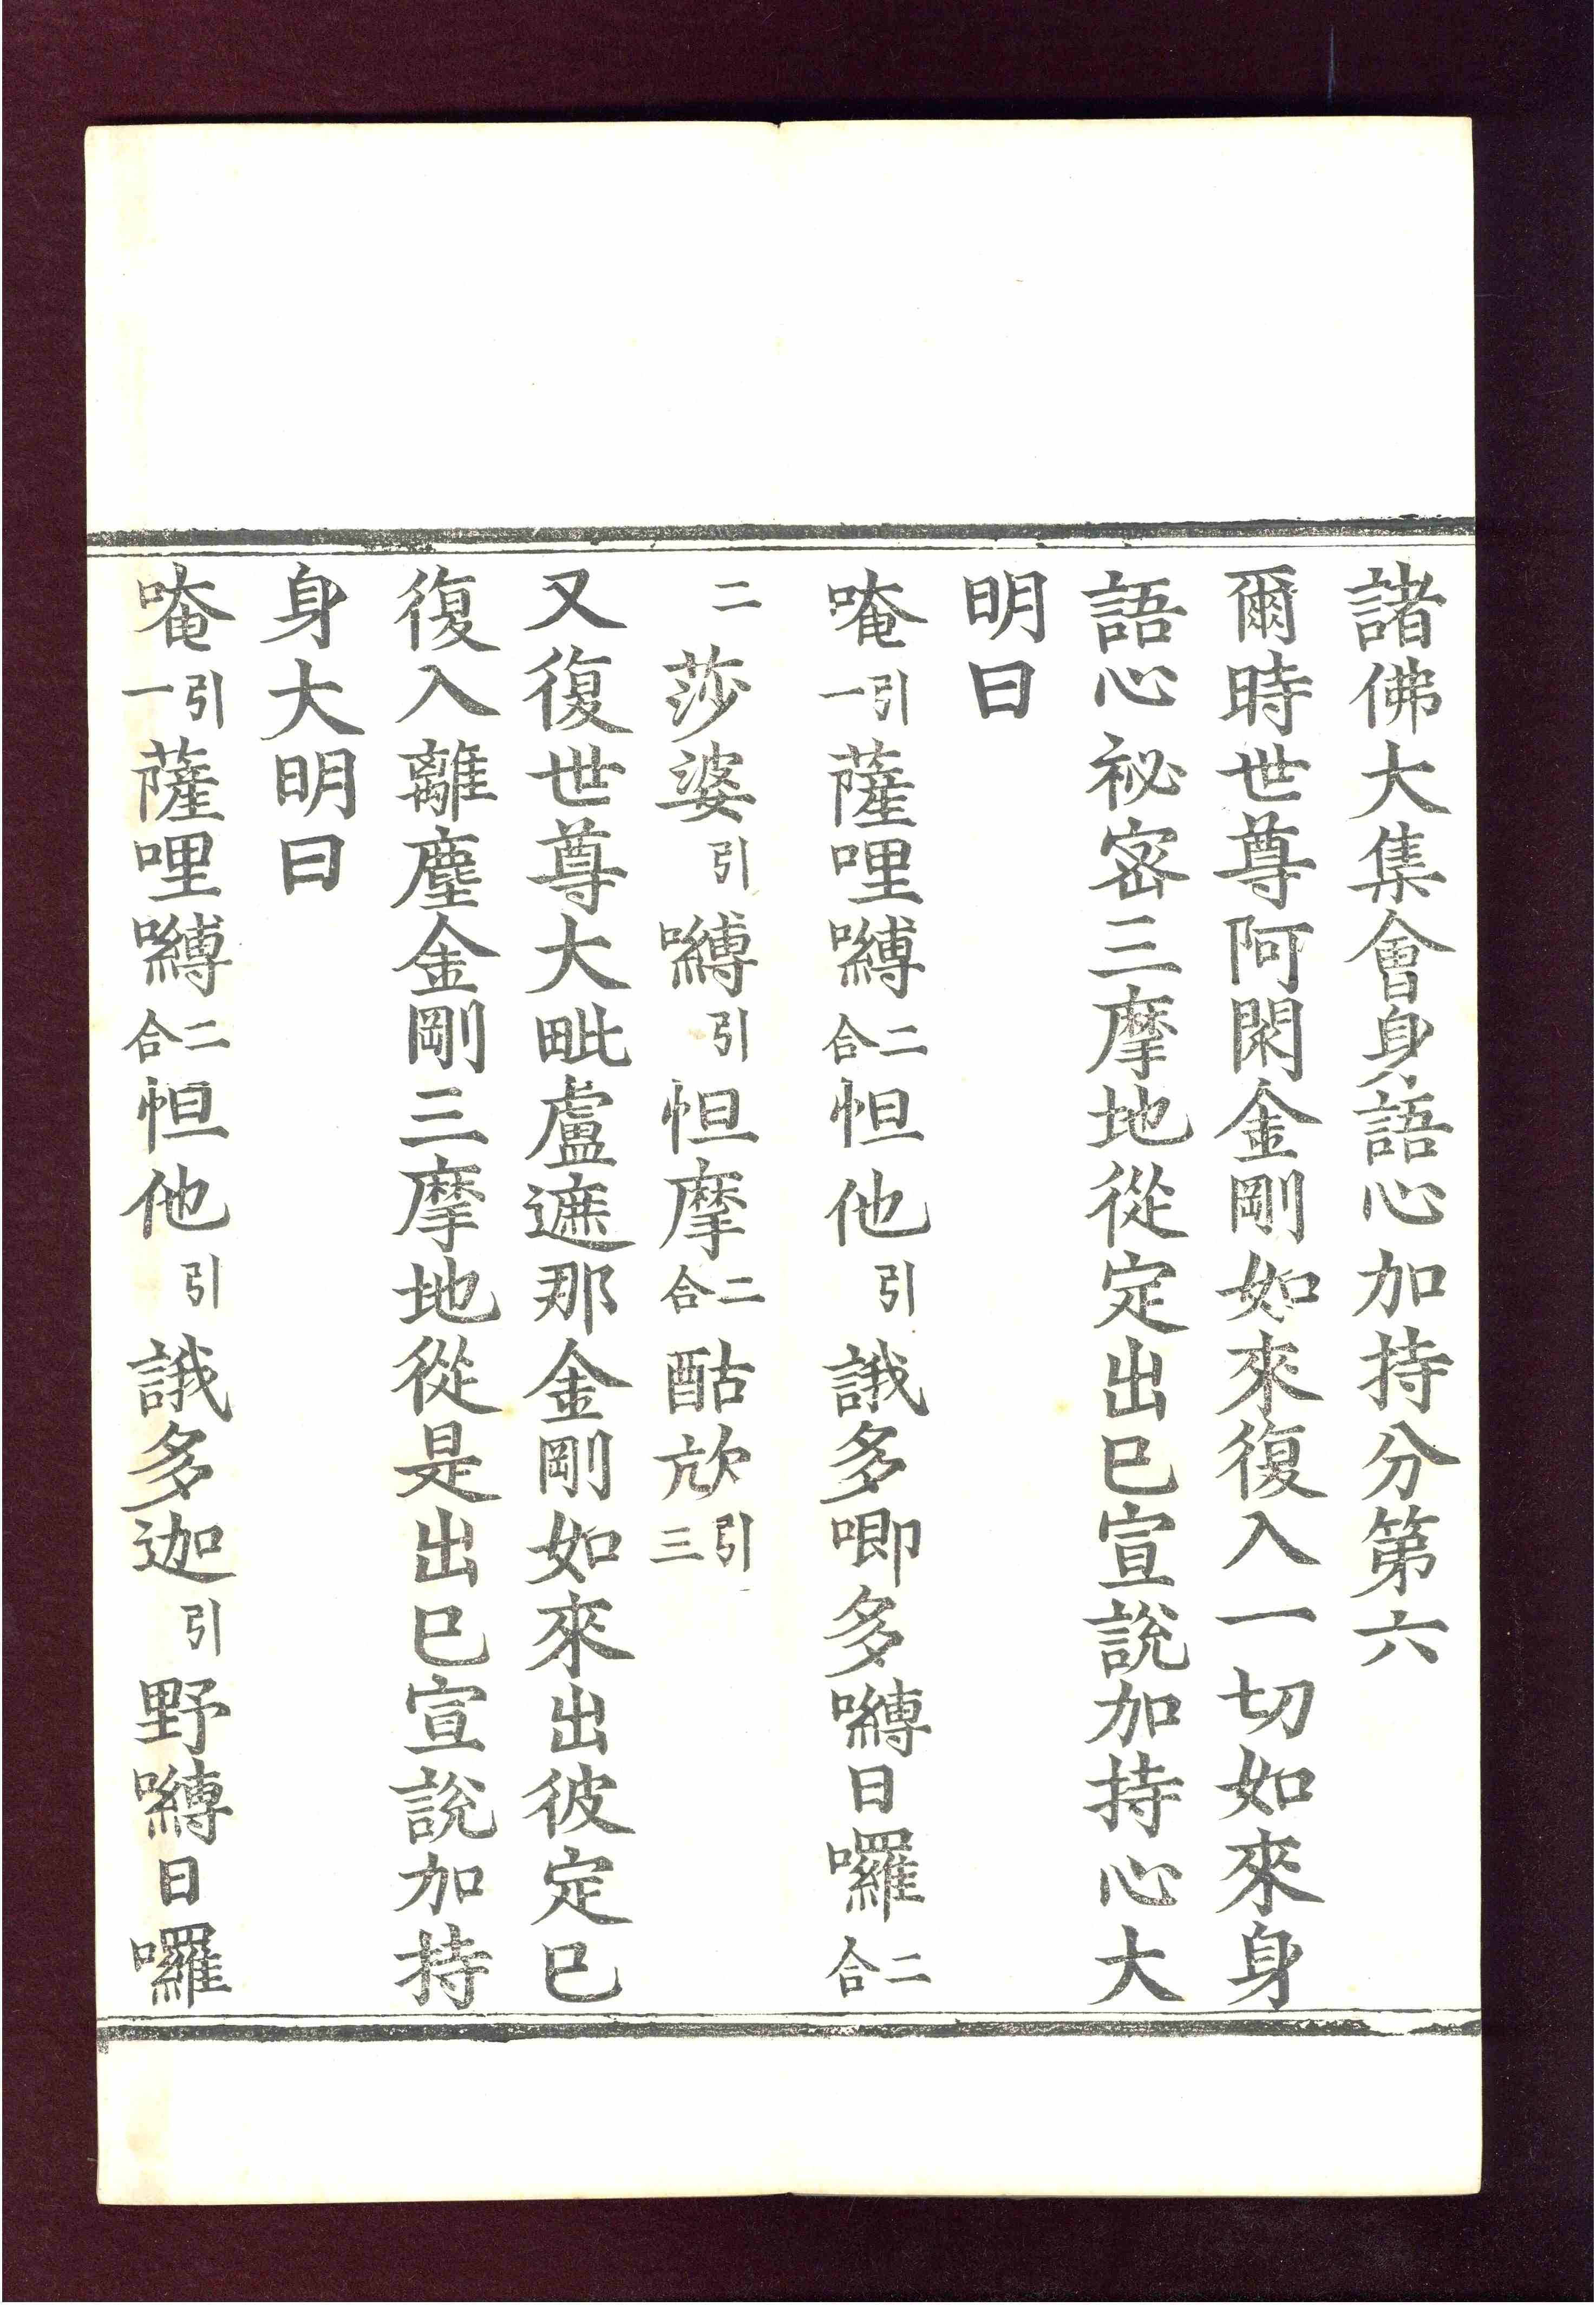 諸佛大集會身語心加持分第六
爾時世尊阿閦金剛如來復入一切如來身
語心祕密三摩地從定出已宣說加持心大
明曰
唵引一薩哩嚩二合怛他引誐多唧多嚩日囉二合
二莎婆引嚩引怛摩二合酤㰠引三
又復世尊大毗盧遮那金剛如來出彼定已
復入離塵金剛三摩地從是出已宣說加持
身大明曰
唵引一薩哩嚩二合怛他引誐多迦引野嚩日囉